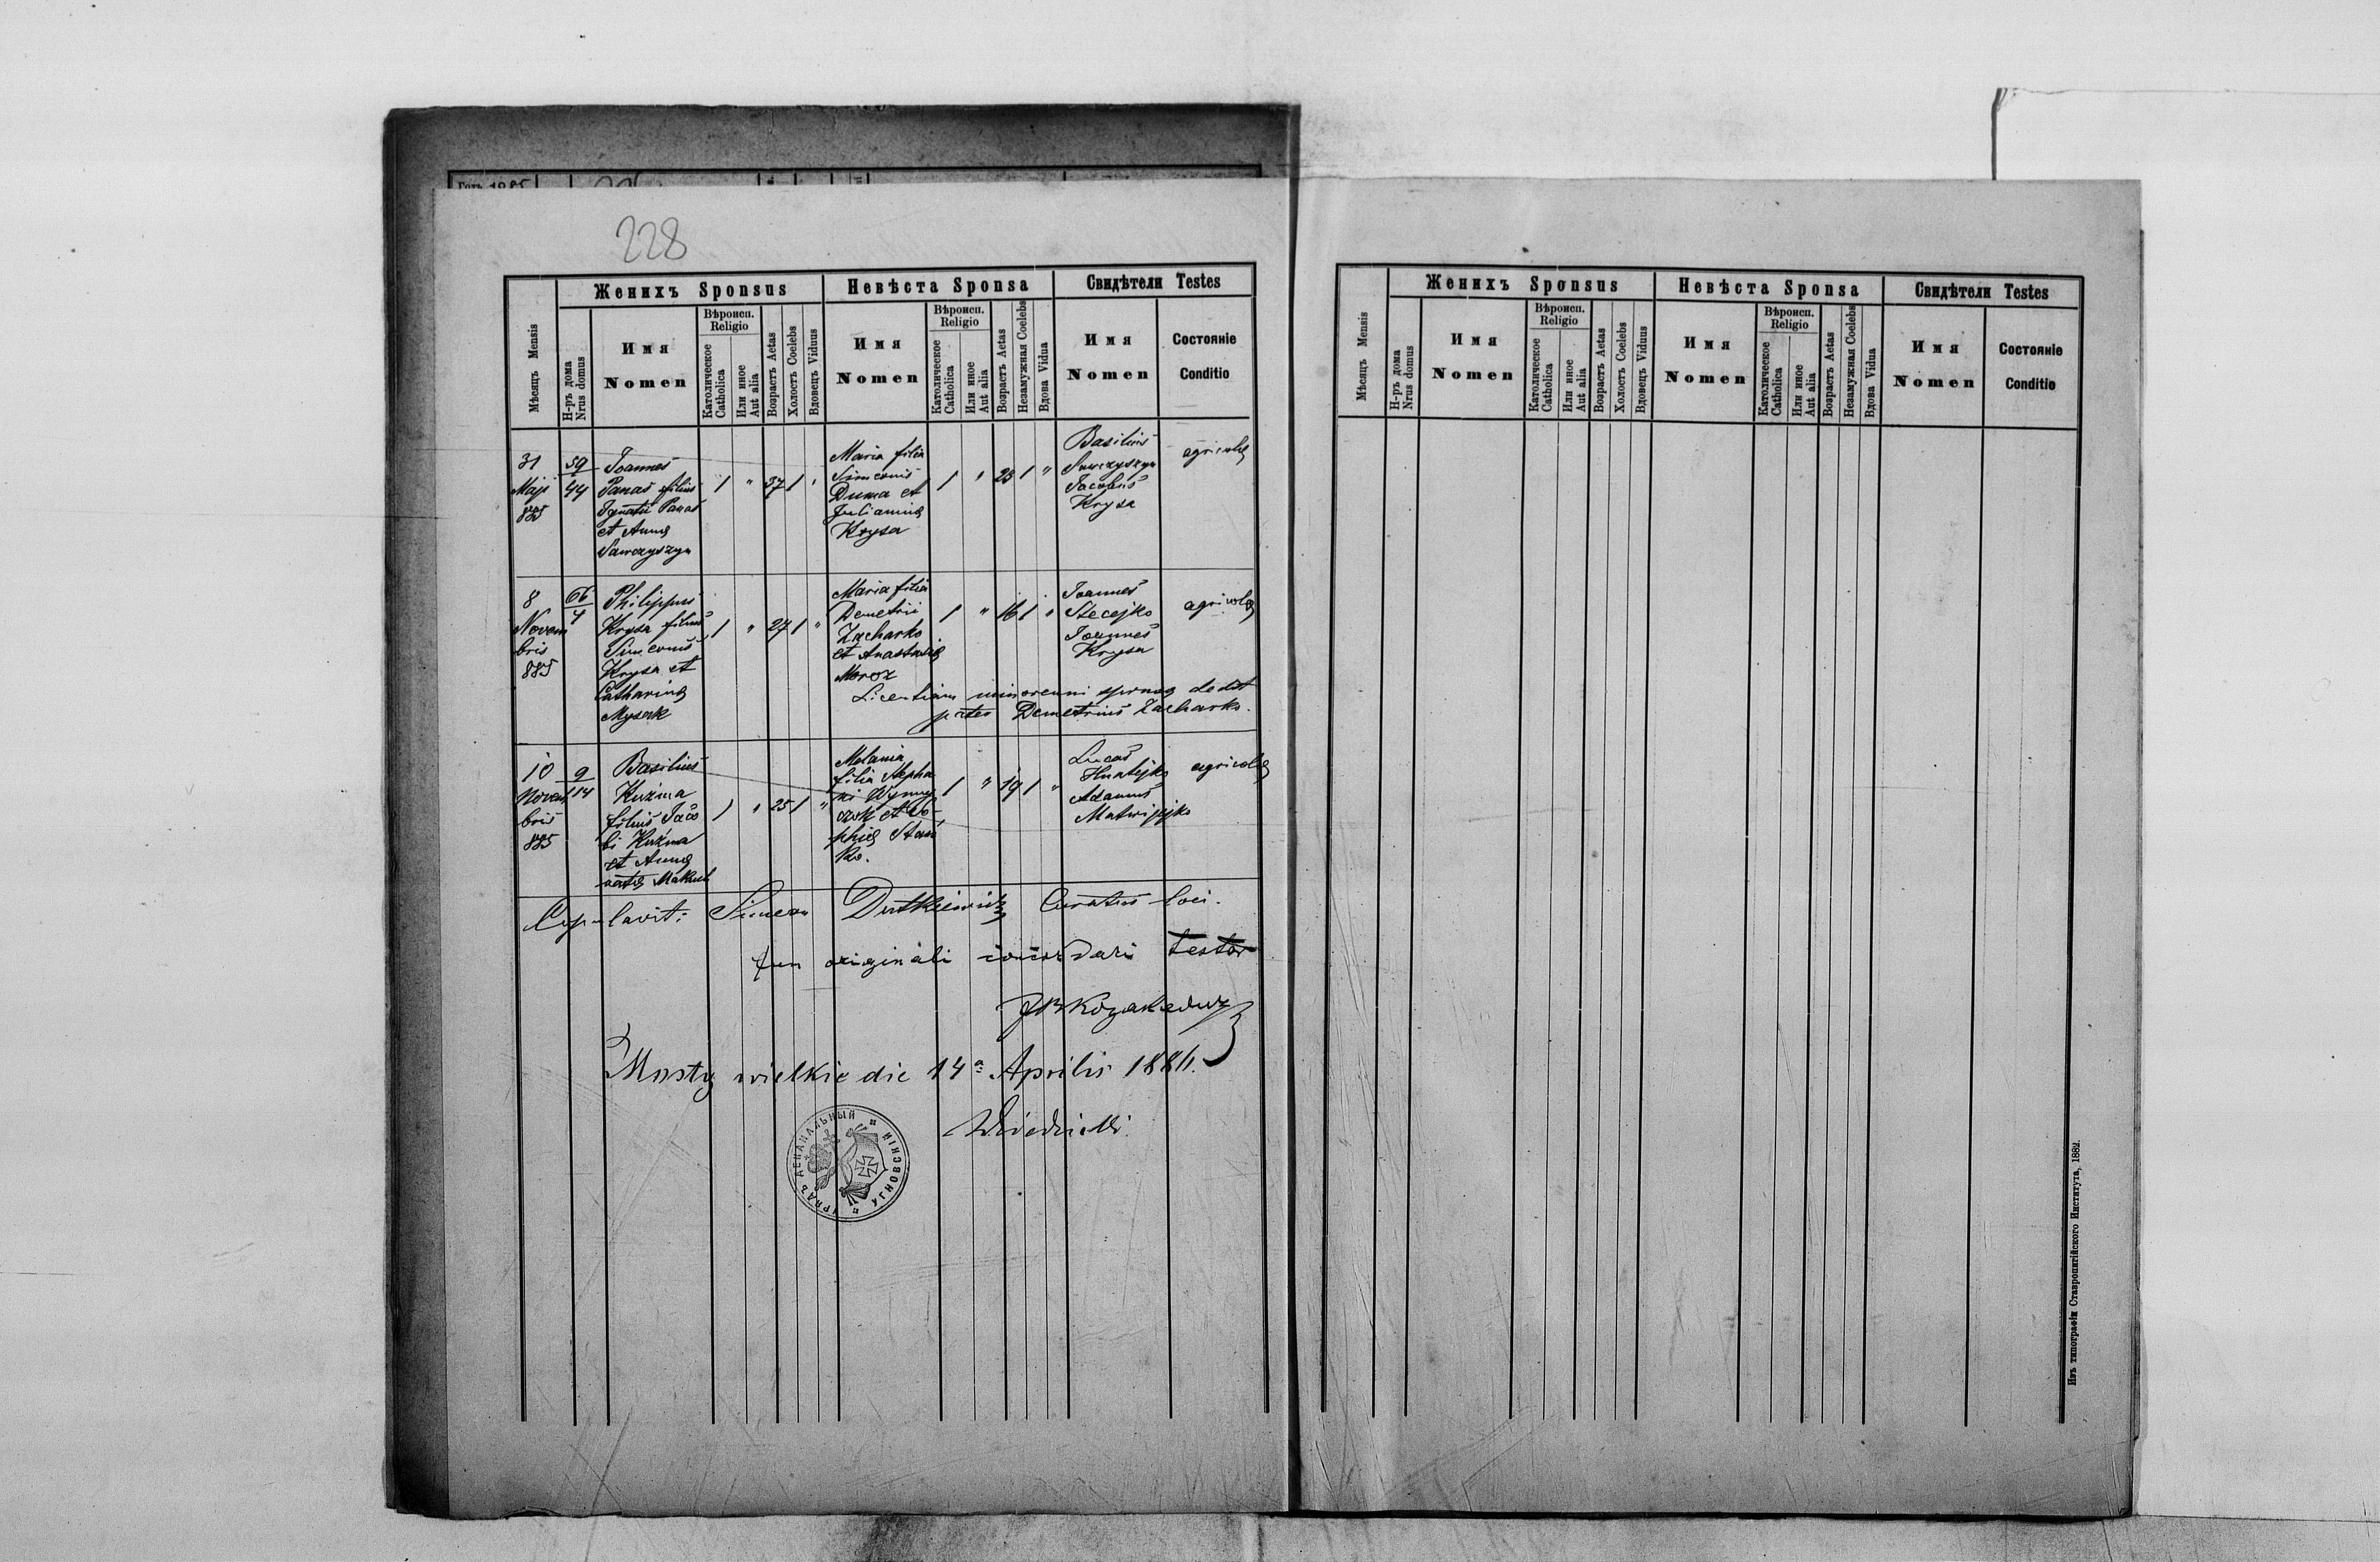 Годъ 1885
228
Женихъ Sponsus
Невѣста Sponsa
Свидѣтели Testes
Мѣсяцъ Mensis
Н-ръ дома
Nrus domus
Имя
Nomen
Вѣроисп.
Religio
Католическое
Catholica
Или иное
Aut alia
Возрастъ Aetas
Холостъ Coelebs
Вдовецъ Viduus
Имя
Nomen
Вѣроисп.
Religio
Католическое
Catholica
Или иное
Aut alia
Возрастъ Aetas
Незамужная Coelebs
Вдова Vidua
Имя
Nomen
Состояніе
Conditio
31
Maji
885
59
44
Joannes
Panas filius
Ignatii Panas
et Annae
Sawczyszyn
1 " 37 1 "
Maria filia
Simeonis
Duma et
Juliannae
Krysa
1 " 23 1 "
Basilius
Sawczyszyn
Jacobus
Krysa
agricolae
8
Novem
bris
885
66
4
Philippus
Krysa filius
Simeonis
Krysa et
Catharinae
Mysak
1 " 27 1 "
Maria filia
Demetrii
Zacharko
et Anastasiae
Moroz
1 " 16 1 "
Joannes
Stecejko
Joannes
Krysa
agricolae
Licentiam minorenni sponsae dedit
pater Demetrius Zacharko.
10
Novem
bris
885
9
114
Basilius
Kuźma
filius Jaco
bi Kuźma
et Annae
natae Makuch
1 " 25 1 "
Melania
filia Stepha
ni
et So
phiae
ko.
1 " 19 1 "
Lucas
Hnatejko
Adamus
Matwijejko
agricolae
Copulavit: Simeon Dutkiewicz Curatus loci.
Cum originali concordare testor
Mosty wielkie die 14ª Aprilis 1886.
УРЯДЪ ДЕКАНАЛЬНЫЙ УГНОВСКІЙ
Женихъ Sponsus
Невѣста Sponsa
Свидѣтели Testes
Мѣсяцъ Mensis
Н-ръ дома
Nrus domus
Имя
Nomen
Вѣроисп.
Religio
Католическое
Catholica
Или иное
Aut alia
Возрастъ Aetas
Холостъ Coelebs
Вдовецъ Viduus
Имя
Nomen
Вѣроисп.
Religio
Католическое
Catholica
Или иное
Aut alia
Возрастъ Aetas
Незамужная Coelebs
Вдова Vidua
Имя
Nomen
Состояніе
Conditio
Изъ типографіи Ставропигійского Института, 1882.